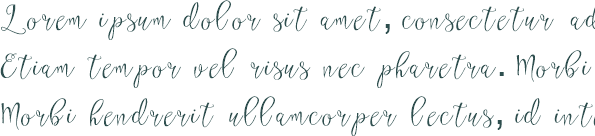 Lorem ipsum dolor sit amet, consectetur ad
Etiam tempor vel risus nec pharetra. Morbi
Morbi hendrerit ullamcorper lectus, id inte